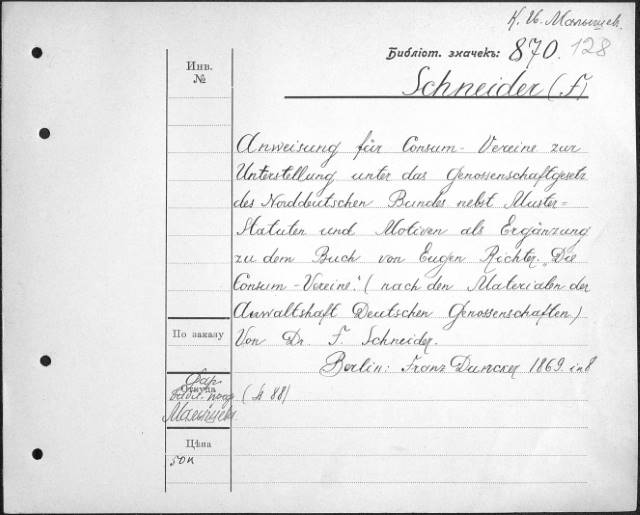 К. И. Малышев.
Библіот. значекъ: 870. 128
Инв.
№
Schneider (F)
Anweisung für Consum-Vereine zur
Unterstellung unter das Genossenschaftgesetz
des Norddeutschen Bundes nebst Muster=
Statuten und Motiven als Ergänzung
zu dem Buch von Eugen Richter. „Die
Consum-Vereine." (nach den Materialen der
Anwaltshaft Deutschen Genossenschaften.)
Von Dr. F. Schneider.
Berlin: Franz Duncker 1869. in 8
По заказу
Откуда
(4 88)
Малышев
Цѣна
50к